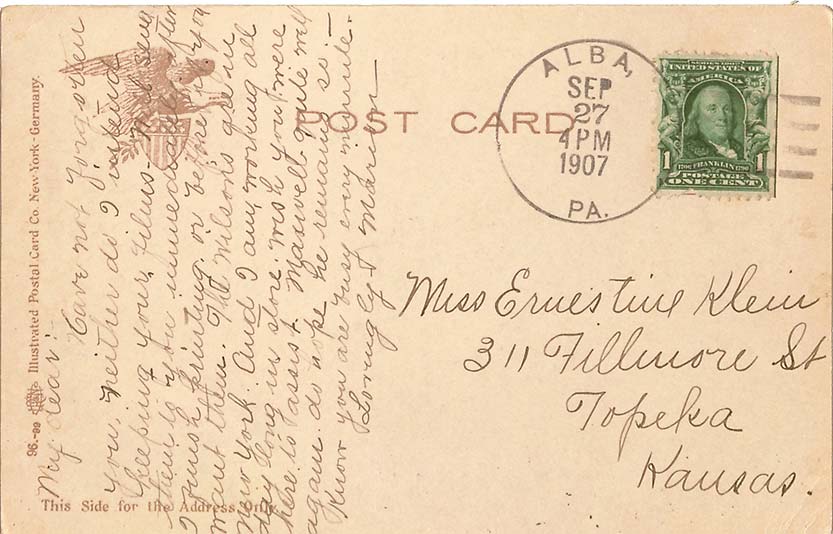 POST CARD
ALBA,
SEP
27
4 PM
1907
PA.
SERIES 1902
UNITED STATES OF
AMERICA
1706 FRANKLIN 1790
1 POSTAGE 1
ONE CENT
Miss Ernestine Klein
311 Fillmore St
Topeka
Kansas.
96.-99 Illustrated Postal Card Co. New-York-Germany.
This Side for the Address Only.
My dear:-
Have not forgotten
you, neither do I intend
keeping your films - Will send
them to you immediately after
I finish printing or before if you
want them. The Wilsons are in
New York. And I am working all
day long in store. Wish you were
here to assist. Maxwell quite well
again. do hope he remains so.-
Know you are busy every minute.
Lovingly Marion